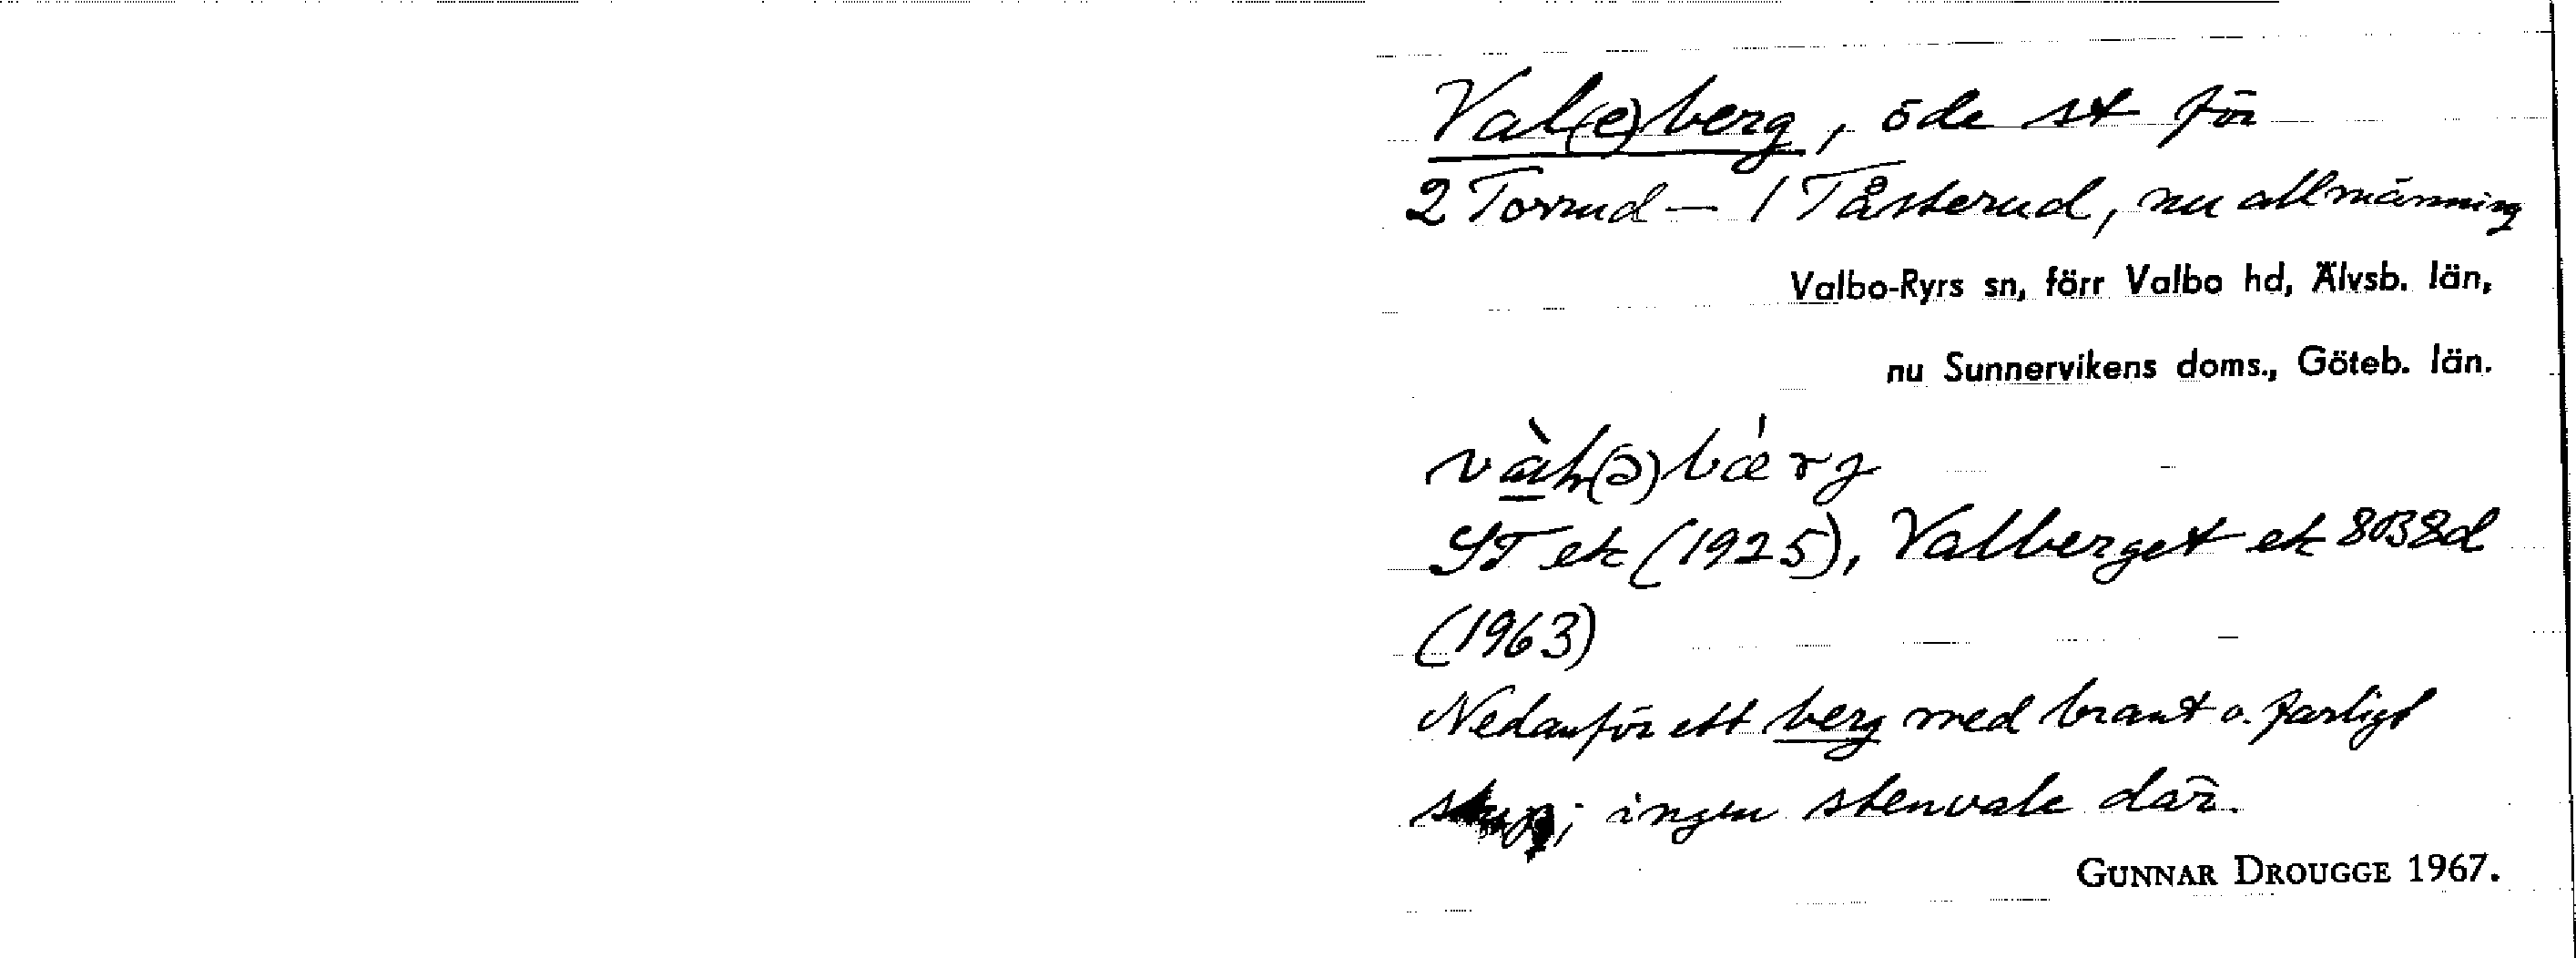 Val(e)berg, öde st för
2 Torrud — 1 Tåsterud, nu allmänning
Valbo-Ryrs sn, förr Valbo hd, Älvsb. län,
nu Sunnervikens doms., Göteb. län.
ST ek (1925), Valberget ek 8B8d
(1963)
Nedanför ett berg med brant o. farligt
stup; ingen stenvale där.
GUNNAR DROUGGE 1967.